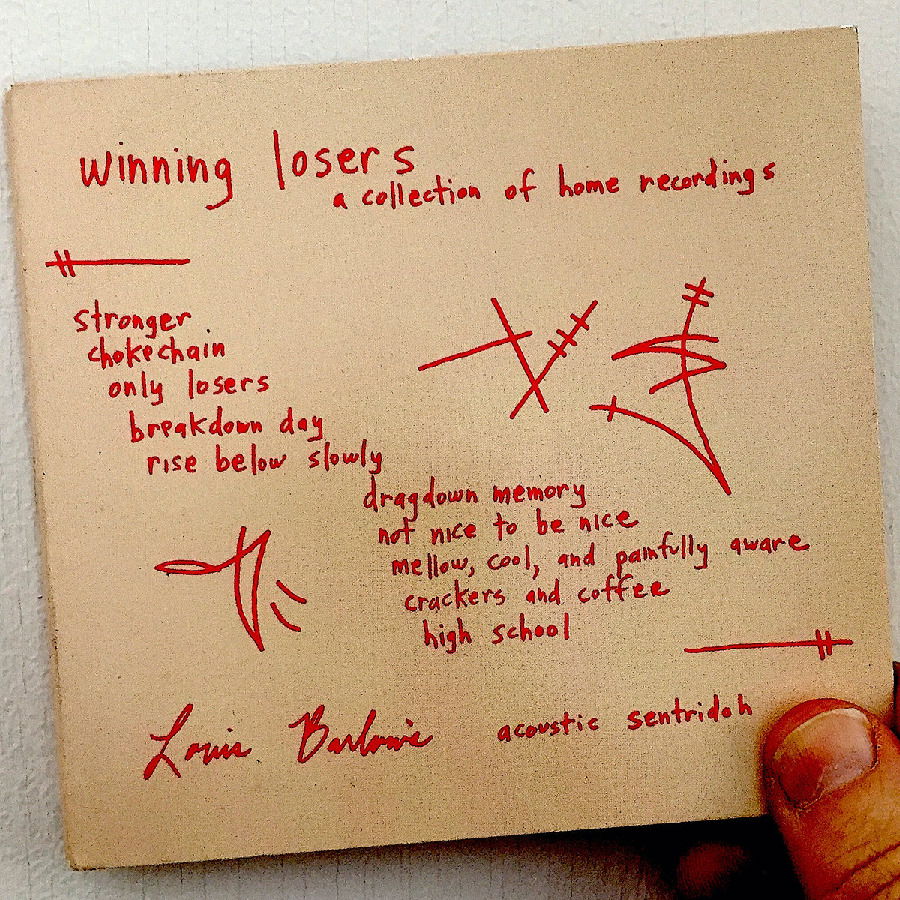 winning losers
a collection of home recordings
stronger
chokechain
only losers
breakdown day
rise below slowly
dragdown memory
not nice to be nice
mellow, cool, and painfully aware
crackers and coffee
high school
Louis Barlow's
acoustic sentridoh